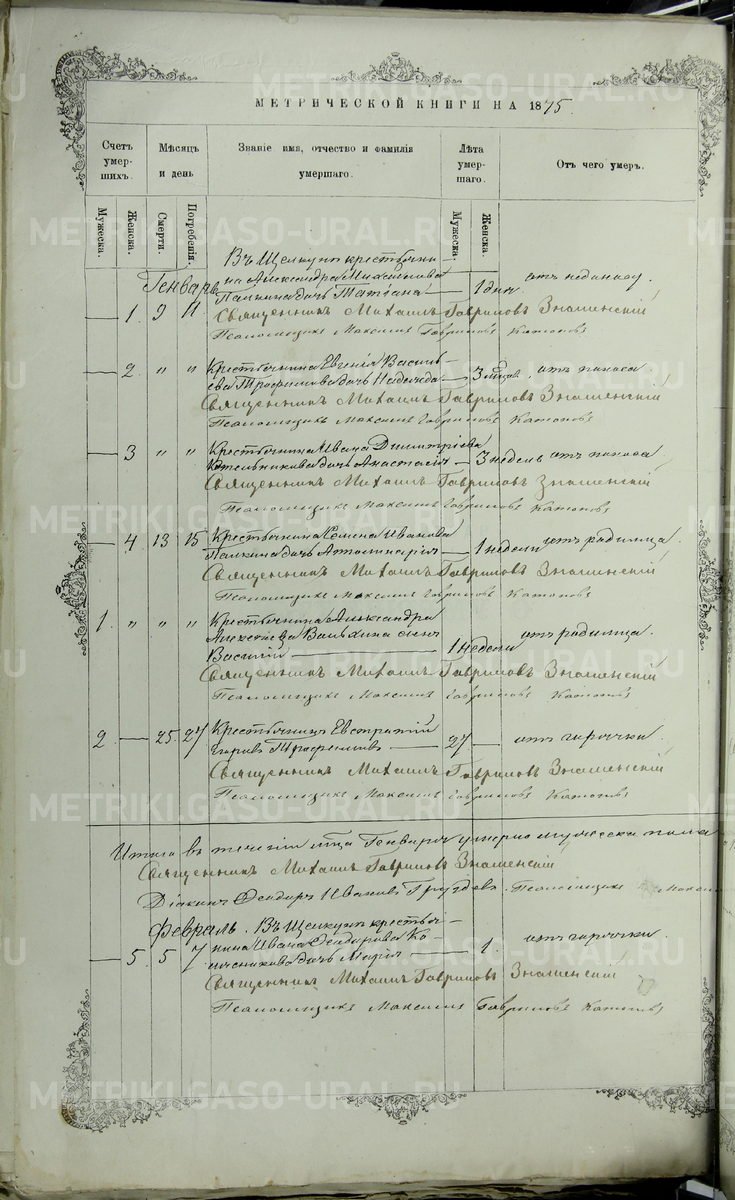 МЕТРИЧЕСКОЙ КНИГИ НА 1875.
Счетъ умер-шихъ. Мѣсяцъ и день Званіе имя, отчество и фамилія умершаго. Лѣта умер-шаго. Отъ чего умеръ.
Мужеска. Женска. Смерти. Погребенія. Мужеска. Женска.
Въ Щелкунѣ крестьяни-
Генваръ на Александра Михайлова
Палкина дочь Татіана — 1 дня отъ
— 1. 9 11 Священникъ Михаилъ Гавриловъ Знаменскій
Псаломщикъ Максимъ Гавриловъ
— 2 " " Крестьянина Евгенія Василь-
ева Трофимова дочь Надежда — 3 отъ поноса
Священникъ Михаилъ Гавриловъ Знаменскій
Псаломщикъ Максимъ Гавриловъ
— 3 " " Крестьянина Ивана Димитріева
Котельникова дочь Анастасія — 3 недель отъ поноса
Священникъ Михаилъ Гавриловъ Знаменскій
Псаломщикъ Максимъ Гавриловъ
— 4 13 15 Крестьянина Иванова
Палкина дочь — 1 недели отъ родимца.
Священникъ Михаилъ Гавриловъ Знаменскій
Псаломщикъ Максимъ Гавриловъ
1. " " " Крестьянина Александра
Алексѣева сынъ
Василій — 1 недели отъ родимца.
Священникъ Михаилъ Гавриловъ Знаменскій
Псаломщикъ Максимъ Гавриловъ
2 — 25. 27 Крестьянинъ Евстратій
Трофимовъ — 27 — отъ горячки.
Священникъ Михаилъ Гавриловъ Знаменскій
Псаломщикъ Максимъ Гавриловъ
Итого въ теченіи Генваря умерло мужеска пола
Священникъ Михаилъ Гавриловъ Знаменскій
Діаконъ Ѳеодоръ Ивановъ Груздевъ. Псаломщикъ
Февраль. Въ Щелкунѣ крестья-
нина Ивана Ѳеодорова Ко-
— 5. 5 7 дочь Марія — 1. отъ горячки.
Священникъ Михаилъ Гавриловъ Знаменскій
Псаломщикъ Максимъ Гавриловъ
METRIKI.GASO-URAL.RU